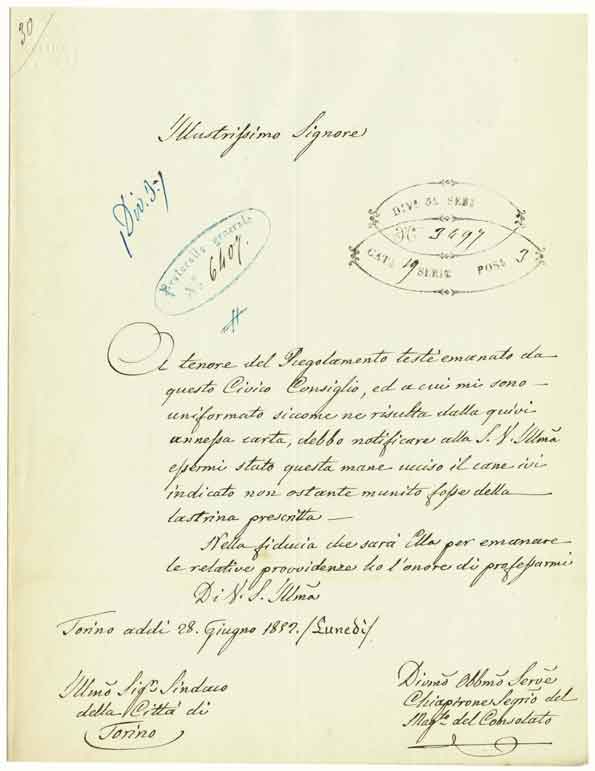 30
Illustrissimo Signore
Div. 3a
Protocollo generale
No 6407.
DIVe 3a SEBE
No 3497
CATA 19 SERIE POSA 3
A tenore del Regolamento testè emanato da
questo Civico Consiglio, ed a cui mi sono
uniformato siccome ne risulta dalla quivi
annessa carta, debbo notificare alla S. V. Illma
essermi stato questa mane ucciso il cane ivi
indicato non ostante munito fosse della
lastrina prescritta
Nella fiducia che sarà Ella per emanare
le relative provvidenze ho l'onore di professarmi
Di V. S. Illma
Torino addì 28. Giugno 1857. /Lunedì/
Illmo Sigr Sindaco
della Città di
Torino
Divmo Obbmo Serve
Chiapirone Segrio del
Magto del Consolato